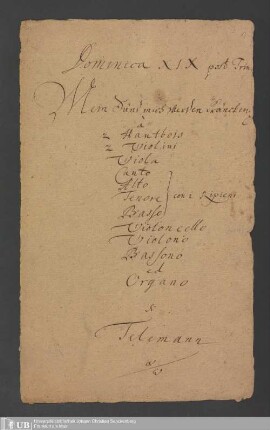 Domenica XIX post Trin
Mein Sünd mich werden kräncken
à
2 Hautbois
2 Violini
Viola
Canto
Alto
Tenore con i Ripieni
Basso
Violoncello
Violono
Bassono
ed
Organo
di
Telemann
UB